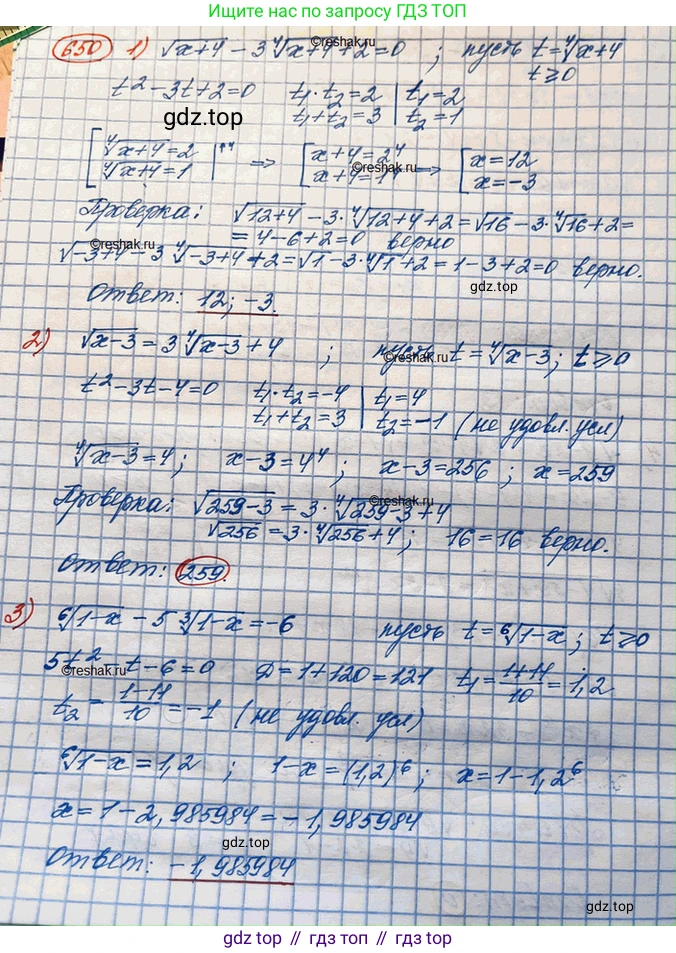 Ищите нас по запросу ГДЗ ТОП
650 1) √x+4 - 3 ∜x+4 + 2 = 0 ; пусть t = ∜x+4
t ≥ 0
t² - 3t + 2 = 0 t₁ · t₂ = 2 | t₁ = 2
t₁ + t₂ = 3 | t₂ = 1
gdz.top
[ ∜x+4 = 2 |↑⁴ ⇒ [ x+4 = 2⁴ ⇒ [ x = 12
∜x+4 = 1 x+4 = 1⁴ x = -3
©reshak.ru
Проверка: √12+4 - 3 · ∜12+4 + 2 = √16 - 3 · ∜16 + 2 =
= 4 - 6 + 2 = 0 верно
©reshak.ru
√-3+4 - 3 ∜-3+4 + 2 = √1 - 3 · ∜1 + 2 = 1 - 3 + 2 = 0 верно.
gdz.top
Ответ: 12; -3.
2) √x-3 = 3 ∜x-3 + 4 ; пусть t = ∜x-3 ; t ≥ 0
©reshak.ru
t² - 3t - 4 = 0 t₁ · t₂ = -4 | t₁ = 4
t₁ + t₂ = 3 | t₂ = -1 (не удовл. усл)
∜x-3 = 4 ; x - 3 = 4⁴ ; x - 3 = 256 ; x = 259
Проверка: √259-3 = 3 · ∜259-3 + 4
©reshak.ru
√256 = 3 · ∜256 + 4 ; 16 = 16 верно.
Ответ: 259.
3) ⁶√1-x - 5 ∛1-x = -6 пусть t = ⁶√1-x ; t ≥ 0
5t² - t - 6 = 0 D = 1 + 120 = 121 t₁ = 1+11/10 = 1,2
©reshak.ru
t₂ = 1-11/10 = -1 (не удовл. усл)
⁶√1-x = 1,2 ; 1 - x = (1,2)⁶ ; x = 1 - 1,2⁶
x = 1 - 2,985984 = -1,985984
gdz.top
Ответ: -1,985984
gdz.top
gdz.top // гдз.топ // gdz.top